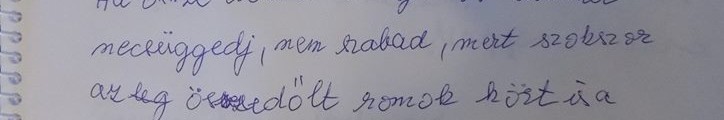 necsüggedj, nem szabad, mert szokszor
az leg összedőlt romok közt is a